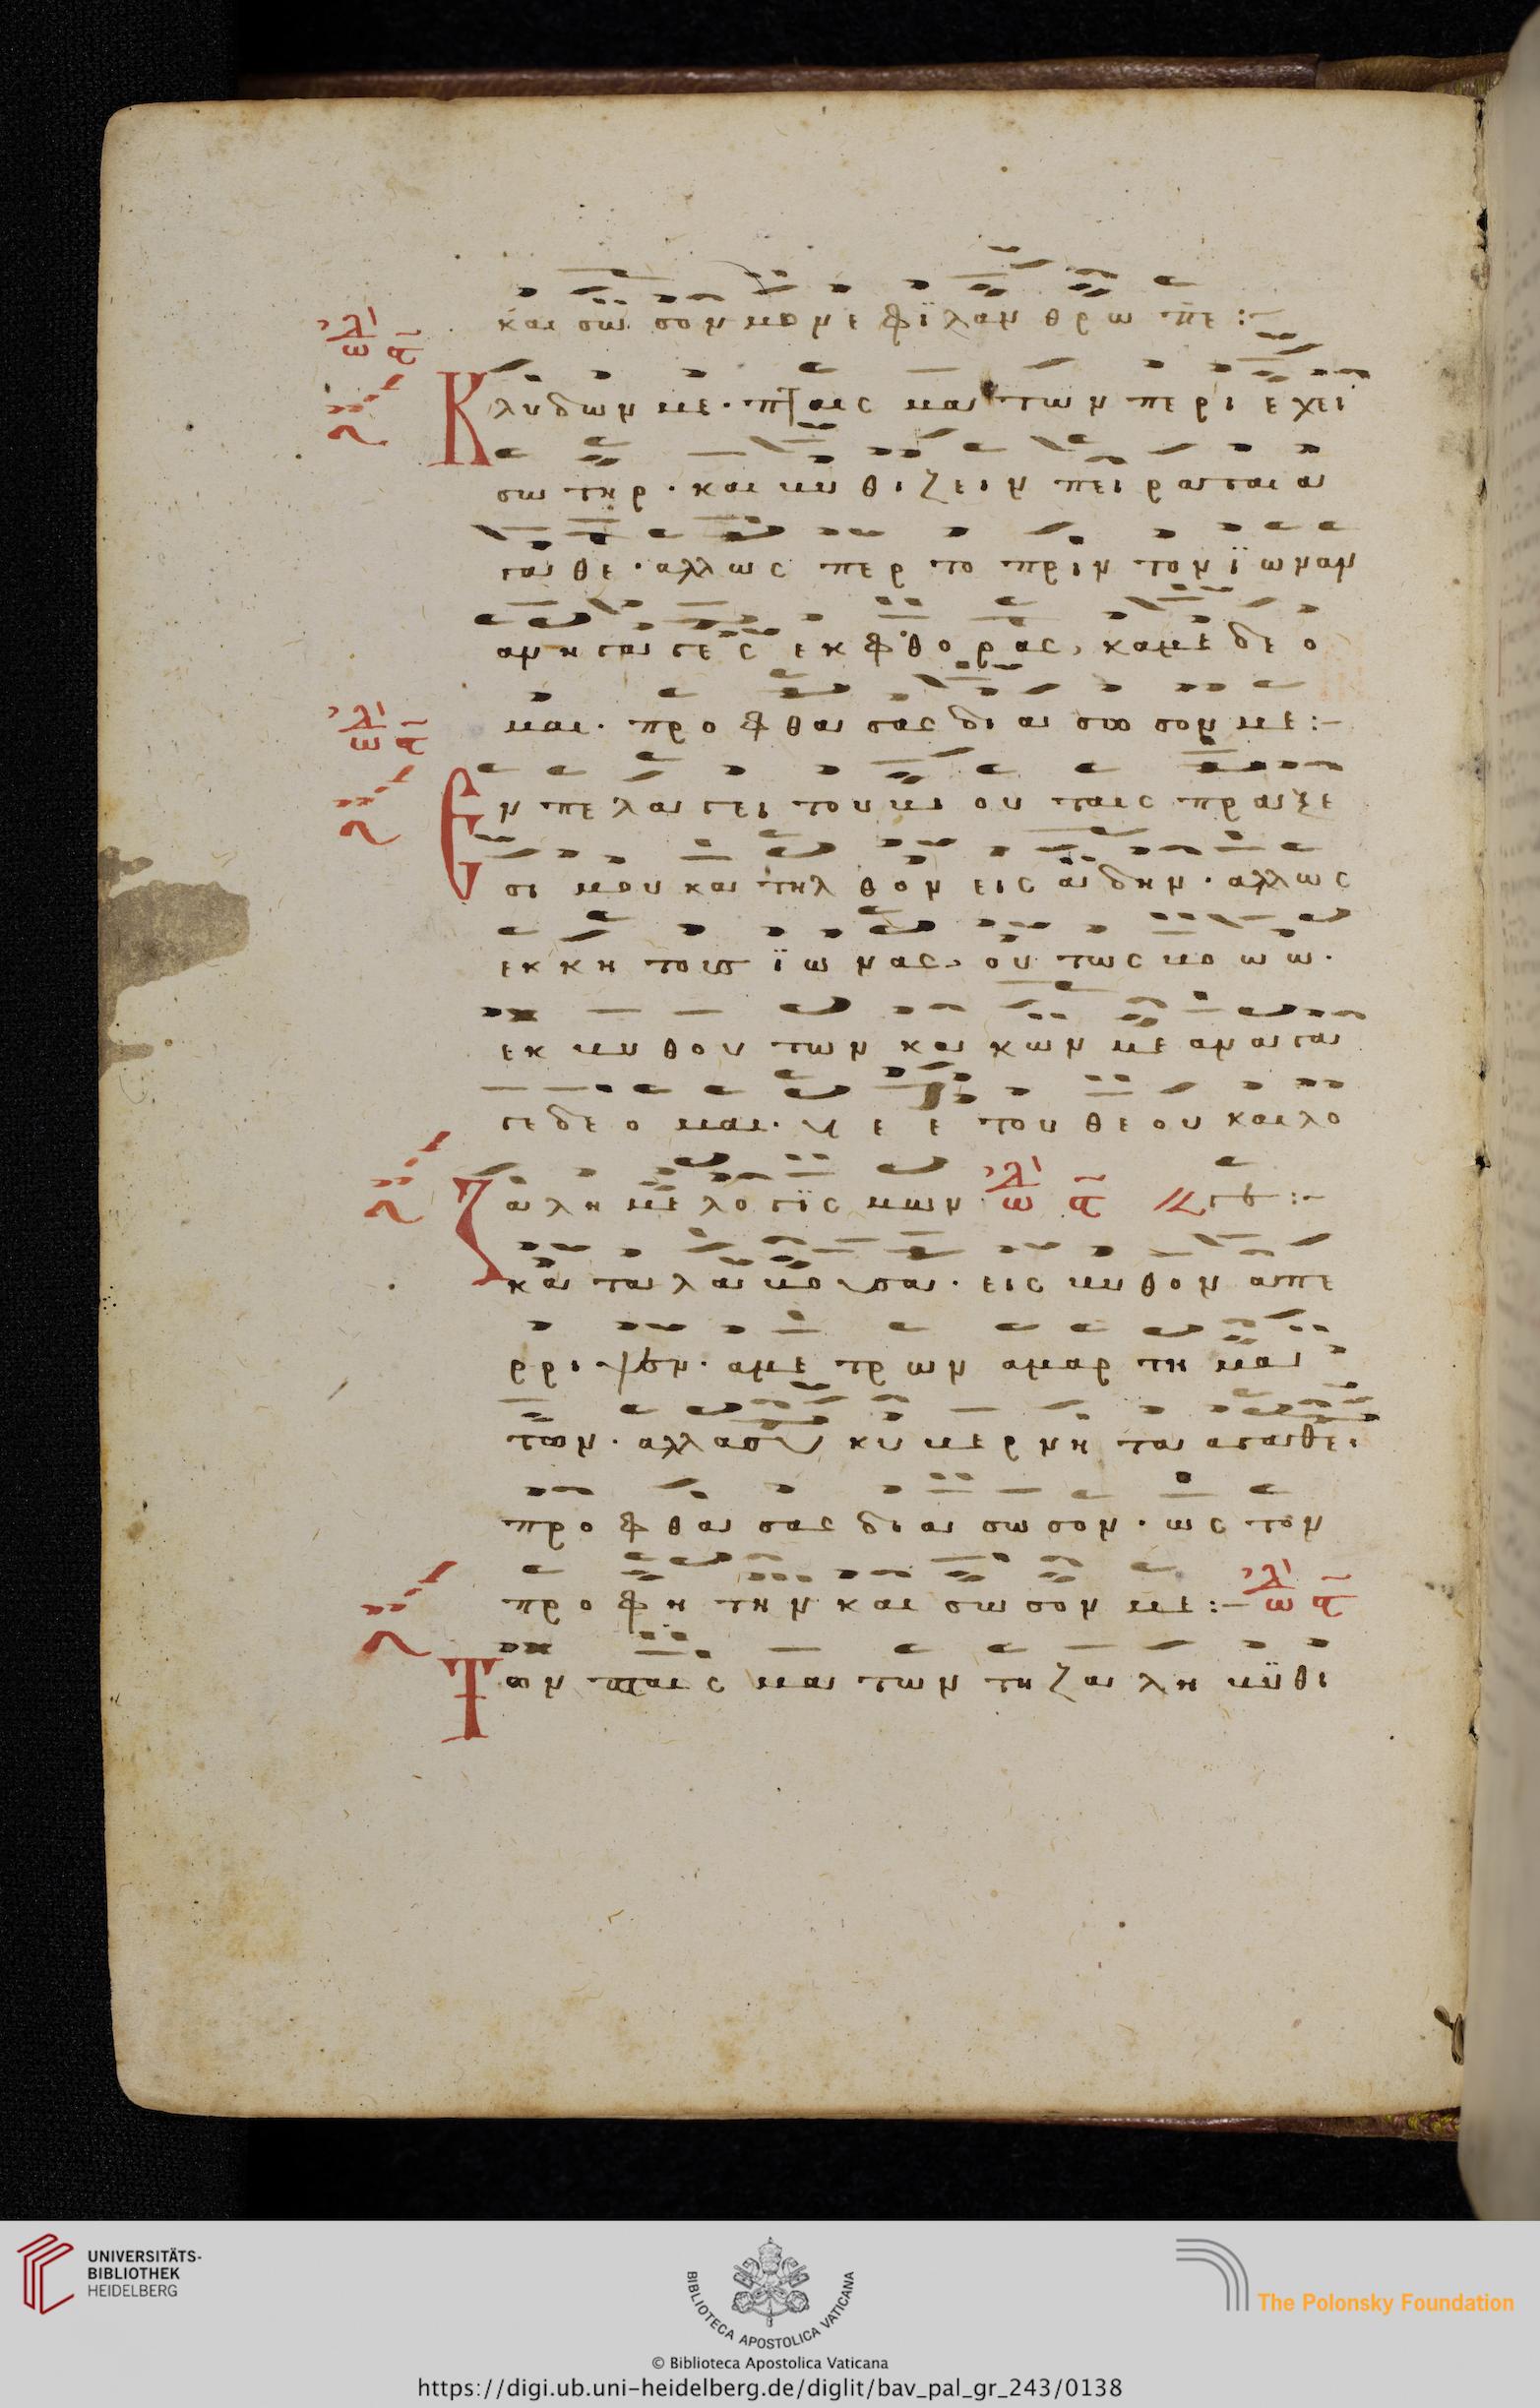 και σω σον με φϊλαν θρω πε :-
ᾠ α
Κλυδων με · πταις μα των περι εχει
σω τηρ · και βυ θι ζειν πει ρα ται α
ται θε · αλλ ως περ το πριν τον ϊωναν
ανη τα τε ς εκ φθο ρας, καμε δε ο
μαι · προ φθα σας δι α σω σον με :-
ᾠ α
Εν πε λα γει του βι ου ταις πρα ξε
σι μου κα τηλ θον εις α δην · αλλ ως
εκ κη τους ϊω νας, ου τως βο ω ω ·
εκ βυ θου των κα κων με ανα γα
γε δε ο μαι · υι ε ε του θε ου και λο
Ζαλη με λο γϊς μων ᾠ α
κα τα λα βου σα · εις βυ θον απε
ρρι ψεν · αμε τρων αμαρ τη μα
των · αλλα συ κυ βερ νη τα αγαθε ·
προ φθα σας δι α σω σον · ως τον
προ φη την και σω σον με :- ᾠ α
Των πταις μα των τη ζα λη βϋθι
UNIVERSITÄTS-
BIBLIOTHEK
HEIDELBERG
BIBLIOTECA APOSTOLICA VATICANA
The Polonsky Foundation
© Biblioteca Apostolica Vaticana
https://digi.ub.uni-heidelberg.de/diglit/bav_pal_gr_243/0138